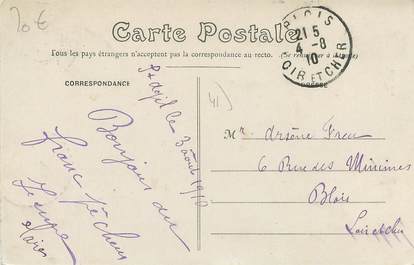 20€
Carte Postale
Tous les pays étrangers n'acceptent pas la correspondance au recto. (Se renseigner à la poste)
BLOIS
21 5
4 - 8
10
LOIR ET CHER
CORRESPONDANCE
41
le 3 août 1910
Bonjour du
franc pêcheur
Mr. Arsène
6 Rue des Minimes
Blois
Loir et Cher